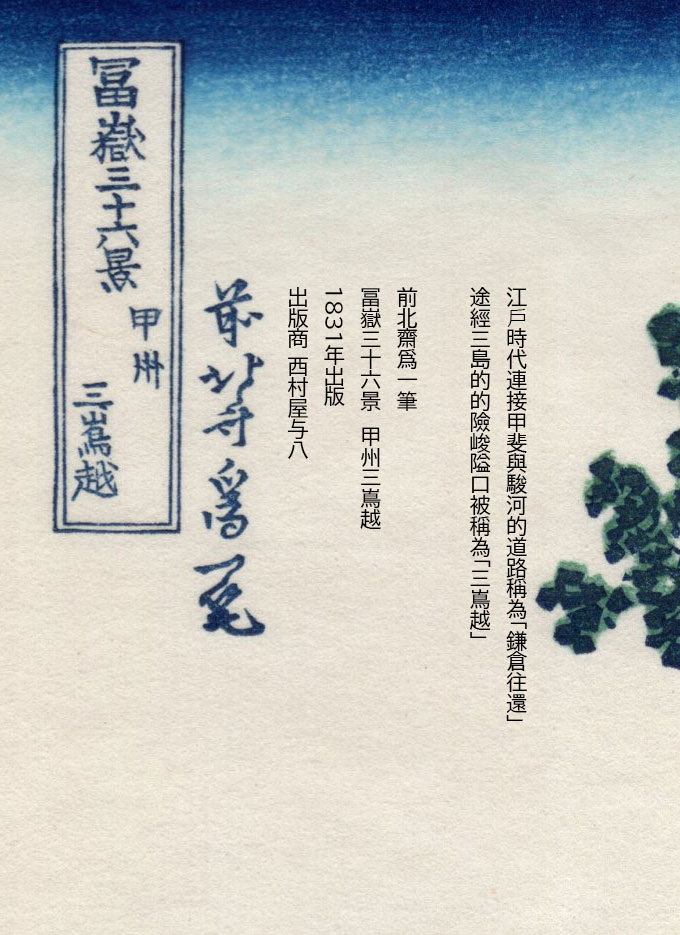 江戶時代連接甲斐與駿河的道路稱為「鎌倉往還」
途經三島的的險峻隘口被稱為「三嶌越」
前北齋爲一筆
冨嶽三十六景 甲州三嶌越
1831年出版
出版商 西村屋与八
前北斎爲一筆
冨嶽三十六景
甲州
三嶌越